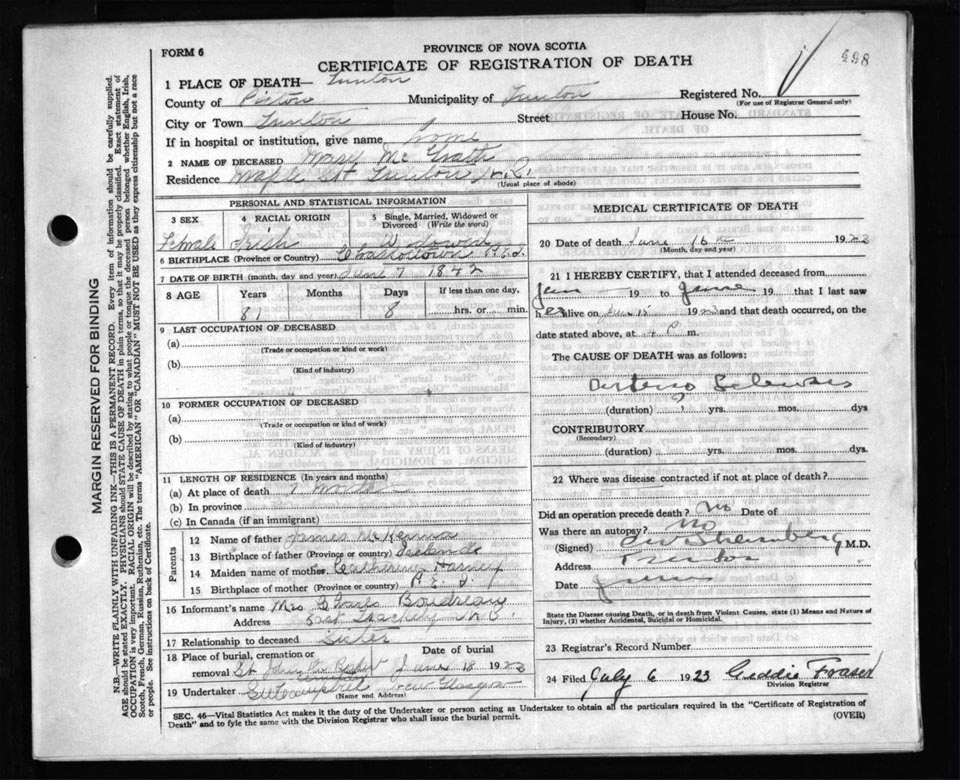 FORM 6
PROVINCE OF NOVA SCOTIA
CERTIFICATE OF REGISTRATION OF DEATH
1 PLACE OF DEATH— Trenton
County of Pictou Municipality of Trenton Registered No.
(For use of Registrar General only)
City or Town Trenton Street House No.
If in hospital or institution, give name home
2 NAME OF DECEASED Mary McGrath
Residence Maple St Trenton N.S.
(Usual place of abode)
PERSONAL AND STATISTICAL INFORMATION
3 SEX 4 RACIAL ORIGIN 5 Single, Married, Widowed or Divorced (Write the word)
Female Irish Widowed
6 BIRTHPLACE (Province or Country) Charlottown P.E.I.
7 DATE OF BIRTH (month, day and year) June 7 1842
8 AGE Years Months Days If less than one day,
81 8 hrs. or min.
9 LAST OCCUPATION OF DECEASED
(a)
(Trade or occupation or kind of work)
(b)
(Kind of industry)
10 FORMER OCCUPATION OF DECEASED
(a)
(Trade or occupation or kind of work)
(b)
(Kind of industry)
11 LENGTH OF RESIDENCE (In years and months)
(a) At place of death
(b) In province
(c) In Canada (if an immigrant)
Parents
12 Name of father James McKenna
13 Birthplace of father (Province or country) Irelande
14 Maiden name of mother Catherine
15 Birthplace of mother (Province or country) P.E.I.
16 Informant's name Mrs Charles Boudreau
Address East
17 Relationship to deceased Sister
18 Place of burial, cremation or removal St John the Date of burial June 18 1923
19 Undertaker New Glasgow
(Name and Address)
MEDICAL CERTIFICATE OF DEATH
20 Date of death June 16 1923
(Month, day and year)
21 I HEREBY CERTIFY, that I attended deceased from
19 to June 19 that I last saw
her alive on June 15 19 and that death occurred, on the
date stated above, at 4 P m.
The CAUSE OF DEATH was as follows:
Arterio Sclerosis
(duration) yrs. mos. dys
CONTRIBUTORY
(Secondary)
(duration) yrs. mos. dys
22 Where was disease contracted if not at place of death?
Did an operation precede death? No Date of
Was there an autopsy? No
(Signed) M.D.
Address Trenton
Date June
State the Disease causing Death, or in death from Violent Causes, state (1) Means and Nature of Injury, (2) whether Accidental, Suicidal or Homicidal.
23 Registrar's Record Number
24 Filed July 6 1923 Geddie Fraser
Division Registrar
SEC. 46—Vital Statistics Act makes it the duty of the Undertaker or person acting as Undertaker to obtain all the particulars required in the "Certificate of Registration of
Death" and to fyle the same with the Division Registrar who shall issue the burial permit.
(OVER)
MARGIN RESERVED FOR BINDING
N.B.—WRITE PLAINLY WITH UNFADING INK—THIS IS A PERMANENT RECORD. Every item of information should be carefully supplied.
AGE should be stated EXACTLY. PHYSICIANS should STATE CAUSE OF DEATH in plain terms, so that it may be properly classified. Exact statement of
OCCUPATION is very important. RACIAL ORIGIN will be described by stating to what people or tongue the deceased person belonged whether English, Irish,
Scotch, French, German, Russian, Ruthenian, etc. The terms "AMERICAN" OR "CANADIAN" MUST NOT BE USED as they express citizenship but not a race
or people. See instructions on back of Certificate.